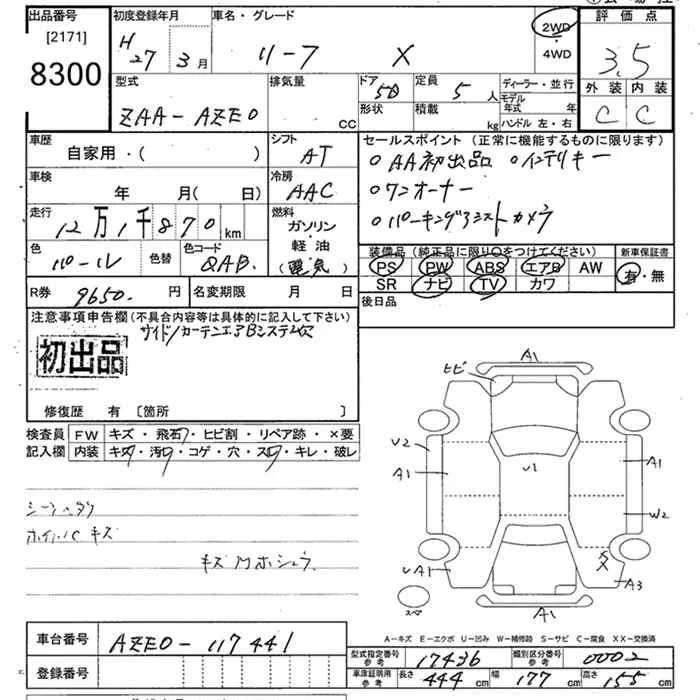 出品番号
[2171]
8300
初度登録年月
H 27 年 3 月
車名・グレード
リーフ X
2WD
・
4WD
評価点
3.5
外装 内装
C C
型式
ZAA-AZE0
排気量
CC
ドア
5D
形状
定員
5 人
積載
kg
ディーラー・並行
モデル年式 年
ハンドル 左・右
車歴
自家用・( )
シフト
AT
セールスポイント (正常に機能するものに限ります)
○AA初出品 ○インテリキー
○ワンオーナー
○パーキングアシストカメラ
車検
年 月( 日)
冷房
AAC
走行
12万1千870 km
燃料
ガソリン
・
軽油
(電気)
色
パール
色替
色コード
QAB.
装備品 (純正品に限り○をつけてください)
PS PW ABS エアB AW
SR ナビ TV カワ
新車保証書
有・無
R券
9650. 円
名変期限 月 日
後日品
注意事項申告欄(不具合内容等は具体的に記入して下さい)
サイド/カーテンエアBシステム欠
初出品
修復歴 有 [箇所 ]
検査員
記入欄
FW キズ・飛石・ヒビ割・リペア跡・×要
内装 キズ・汚れ・コゲ・穴・スレ・キレ・破レ
ホイルハCキズ
ヒビ
A1
U2
A1
U1
A1
W2
UA1
A3
A1
A-キズ E-エクボ U-凹み W-補修跡 S-サビ C-腐食 XX-交換済
車台番号
AZE0-117441
登録番号
型式指定番号
参考
17436
類別区分番号
参考
0002
車庫証明用
参考
長さ 444 cm 幅 177 cm 高さ 155 cm